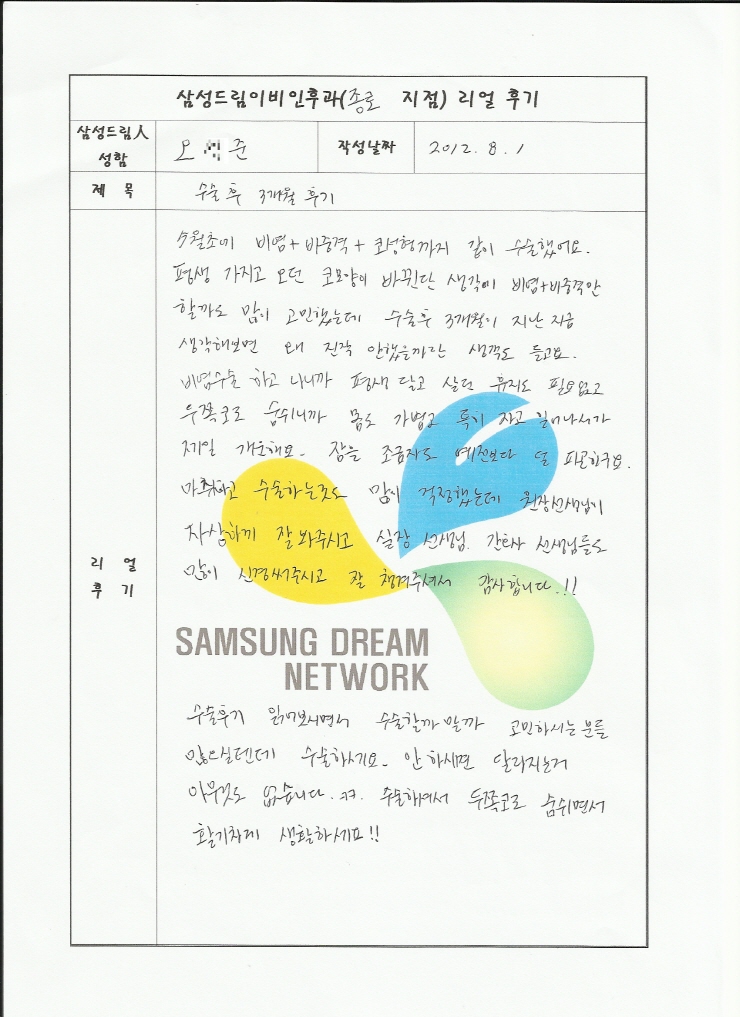 삼성드림이비인후과(종로 지점) 리얼 후기
삼성드림人 성함
오 준
작성날짜
2012. 8. 1
제 목
수술 후 3개월 후기
리 얼
후 기
5월초에 비염+비중격+코성형까지 같이 수술했어요.
평생 가지고 오던 코모양이 바뀐단 생각에 비염+비중격만
할까도 많이 고민했는데 수술후 3개월이 지난 지금
생각해보면 왜 진작 안했을까란 생각도 들고요.
비염수술 하고 나니까 평생 달고 살던 휴지도 필요없고
두쪽코로 숨쉬니까 몸도 가볍고 특히 자고 일어나서가
제일 개운해요. 잠을 조금자도 예전보다 덜 피곤하구요.
마취하고 수술하는것도 많이 걱정했는데 원장선생님이
자상하게 잘 봐주시고 실장 선생님, 간호사 선생님들도
많이 신경써주시고 잘 챙겨주셔서 감사합니다.!!
SAMSUNG DREAM
NETWORK
수술후기 읽어보시면서 수술할까 말까 고민하시는 분들
많으실텐데 수술하세요. 안 하시면 달라지는거
아무것도 없습니다. ㅋㅋ. 수술하셔서 두쪽코로 숨쉬면서
활기차게 생활하세요!!